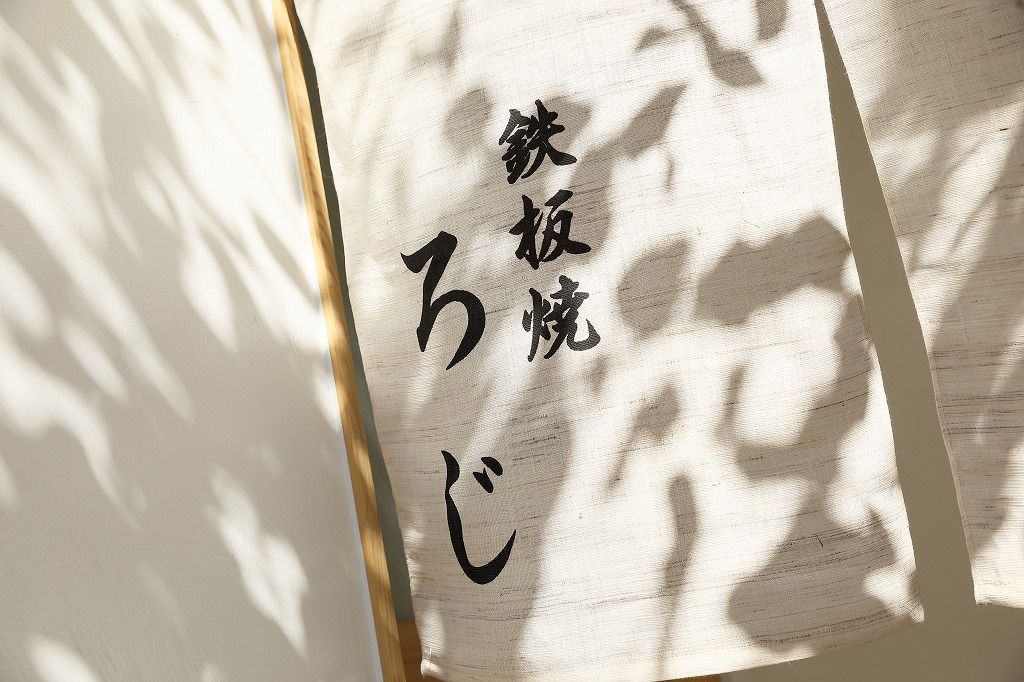 鉄板焼
ろじ